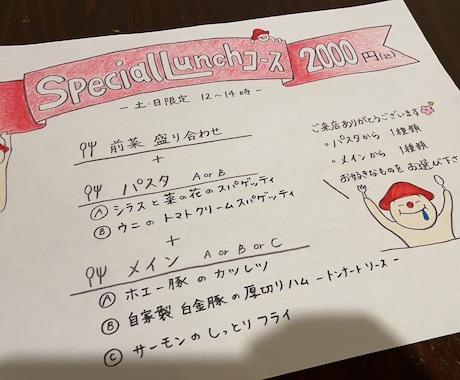 Special Lunch コース 2000円(込)
－ 土・日限定 12～14時 －
前菜 盛り合わせ
+
パスタ A or B
Ⓐ シラスと菜の花のスパゲッティ
Ⓑ ウニのトマトクリームスパゲッティ
+
メイン A or B or C
Ⓐ ホエー豚のカツレツ
Ⓑ 自家製 白金豚の厚切りハム －トンナートソース－
Ⓒ サーモンのしっとりフライ
ご来店ありがとうございます
・パスタから 1種類
・メインから 1種類
お好きなものをお選び下さ